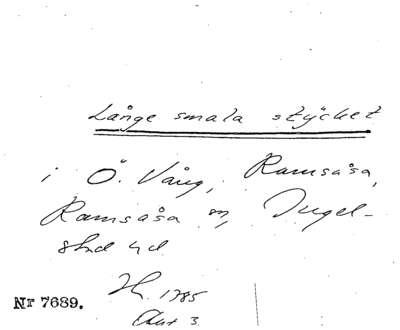 Långe smala stycket
i Ö. Vång, Ramsåsa,
Ramsåsa sn, Ingel-
stad hd
H. 1785
Akt 3.
Nr 7689.